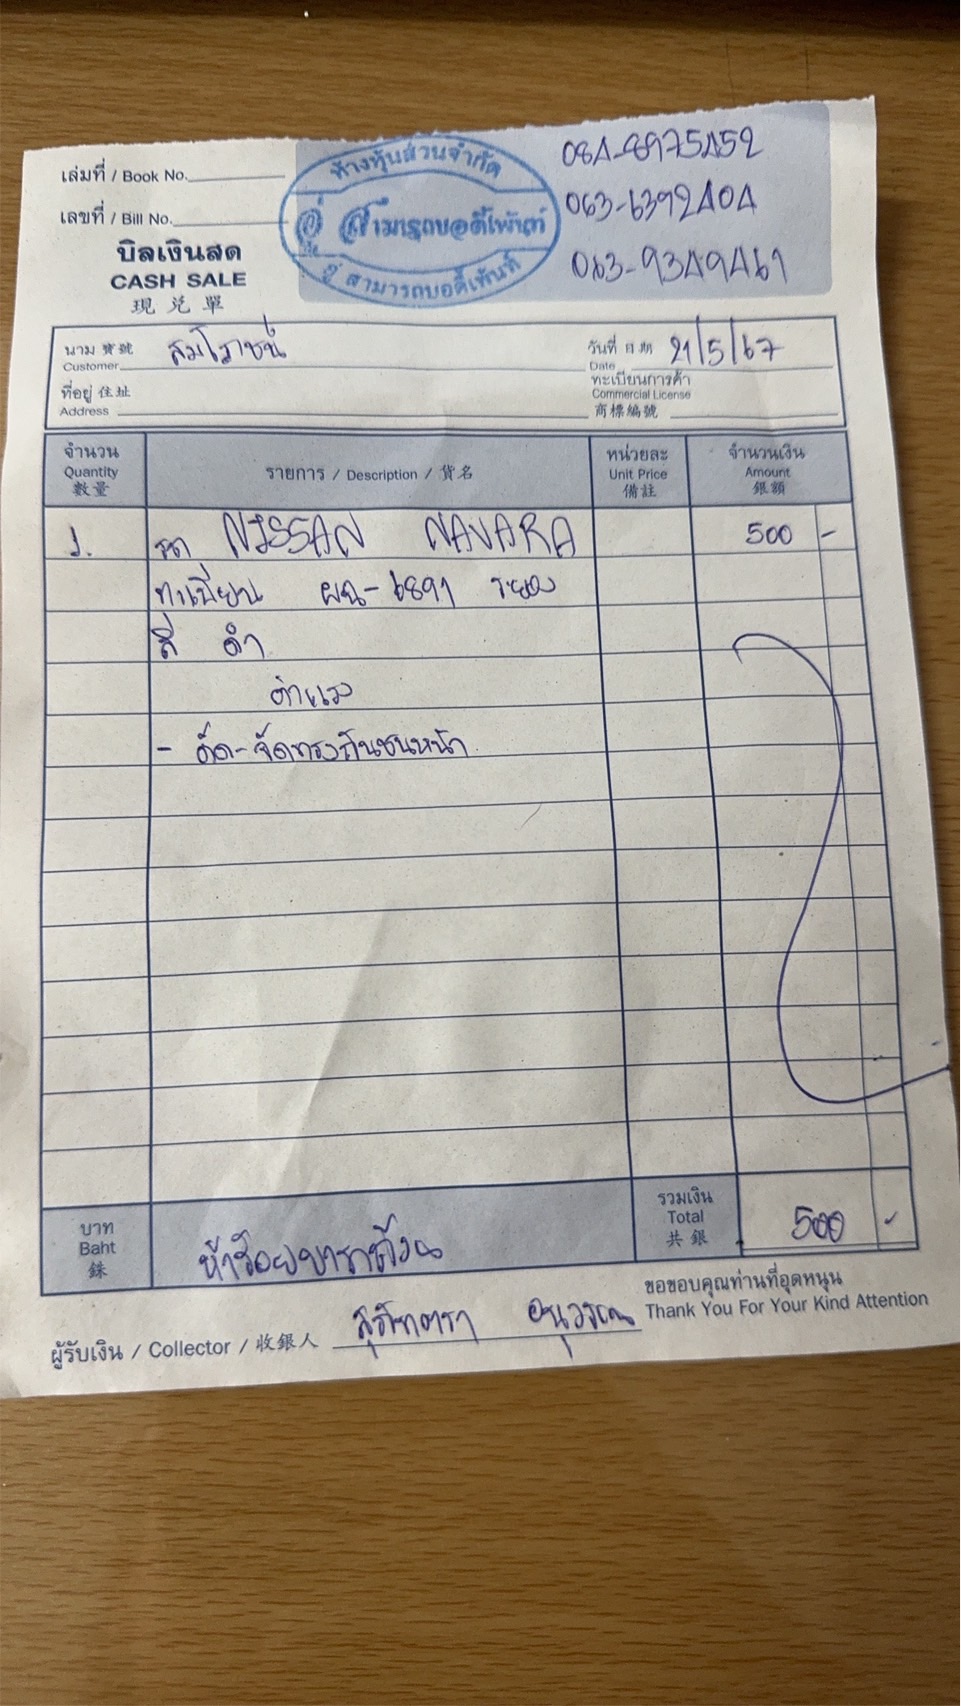 เล่มที่ / Book No.
เลขที่ / Bill No.
บิลเงินสด
CASH SALE
現兌單
ห้างหุ้นส่วนจำกัด
อู่ สามารถบอดี้เพ้นท์
อู่ สามารถบอดี้เพ้นท์
084-8975452
063-6392404
063-9349461
นาม 寶號 Customer สมโภชน์
วันที่ 日期 Date 21/5/67
ที่อยู่ 住址 Address
ทะเบียนการค้า Commercial License 商標編號
จำนวน Quantity 數量
รายการ / Description / 貨名
หน่วยละ Unit Price 備註
จำนวนเงิน Amount 銀額
1. รถ NISSAN NAVARA 500 -
ทะเบียน ผฉ-6891 ระยอง
สี ดำ
ค่าแรง
- ดัด-จัดทรงกันชนหน้า
บาท Baht 銖 ห้าร้อยบาทถ้วน
รวมเงิน Total 共銀 500 -
ขอขอบคุณท่านที่อุดหนุน
Thank You For Your Kind Attention
ผู้รับเงิน / Collector / 收銀人